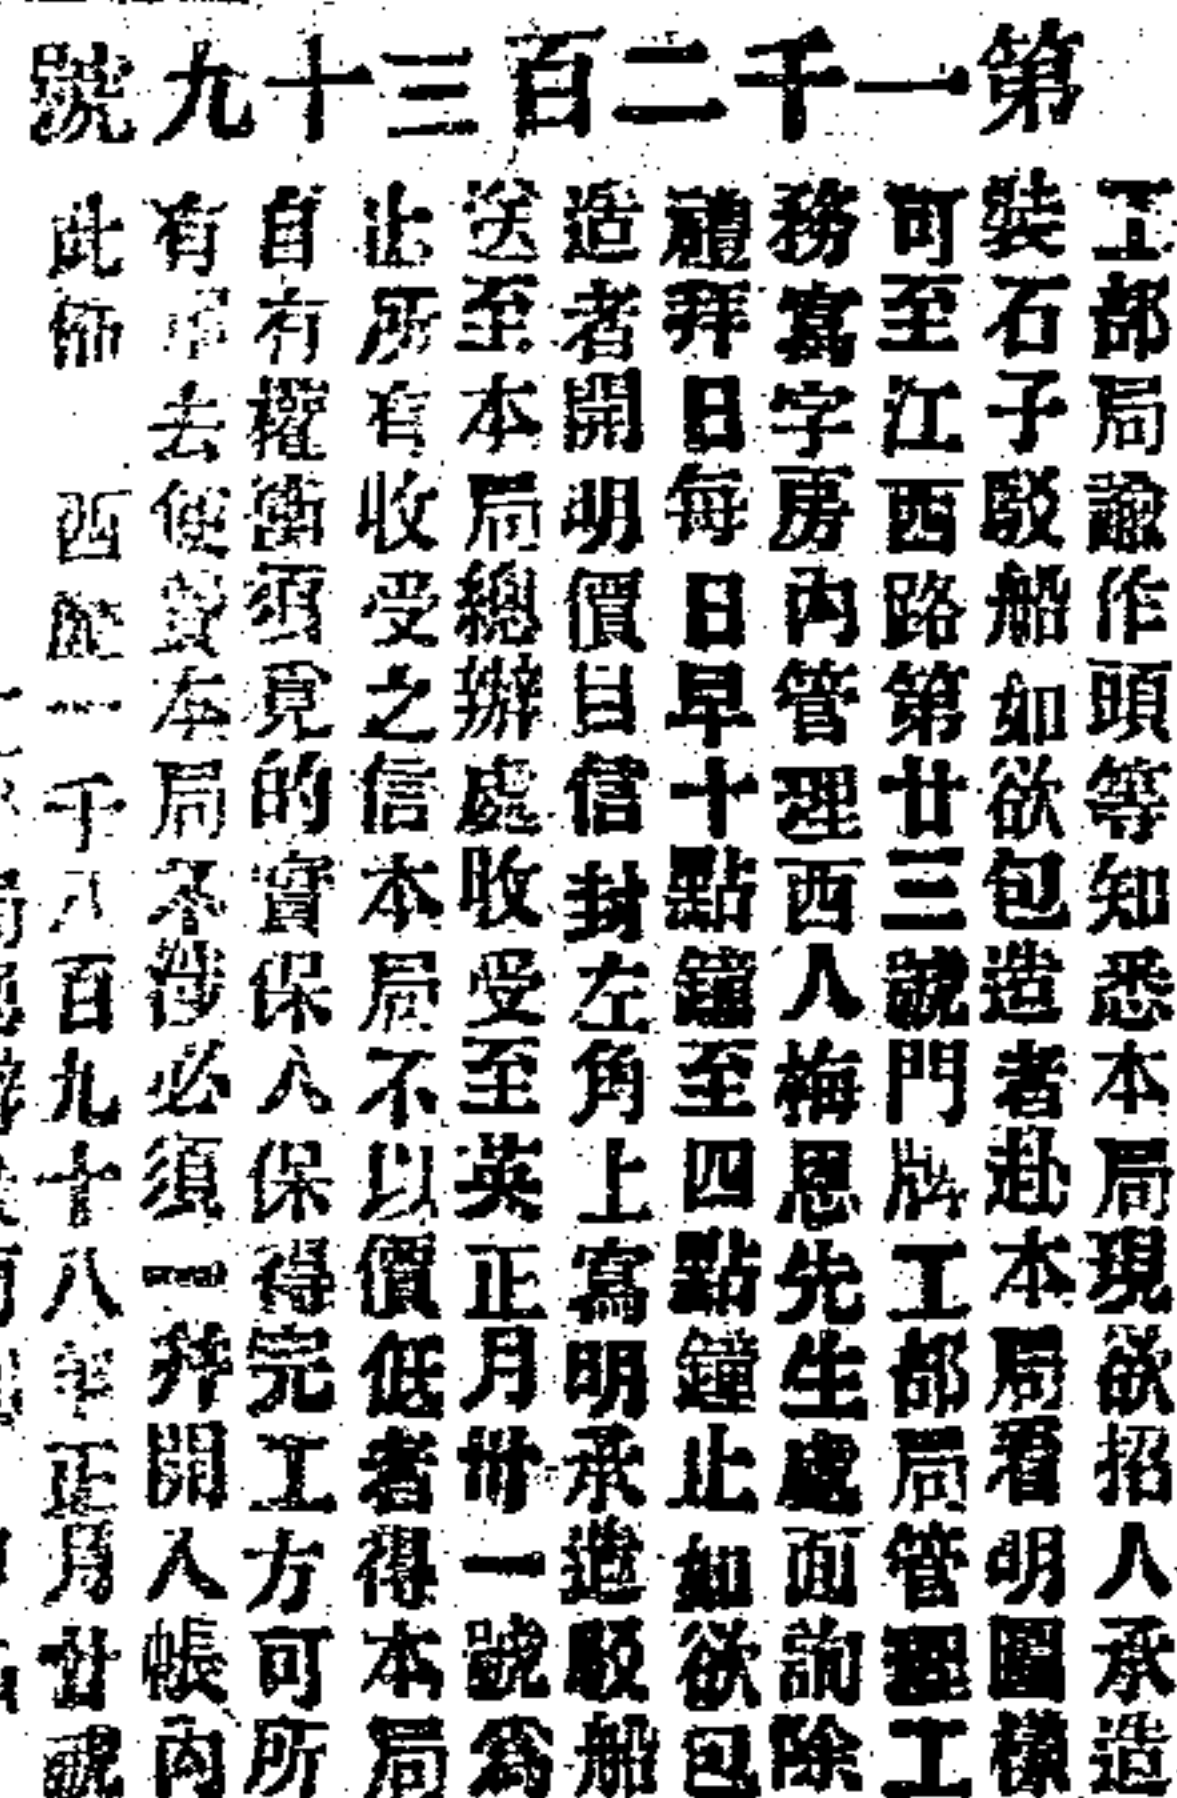 第一千二百三十九號
工部局諭作頭等知悉本局現欲招人承造
裝石子駁船如欲包造者赴本局看明圖樣
可至江西路第廿三號門牌工部局管理工
務寫字房內管理西人梅恩先生處面詢除
禮拜日每日早十點鐘至四點鐘止如欲包
造者開明價目信封左角上寫明承造駁船
送至本局總辦處收受至英正月卅一號為
止所有收受之信本局不以價低者得本局
自有權衡須覓的實保人保得完工方可所
有 去使費本局不涉必須一并開入帳內
此佈 西歷一千八百九十八年正月廿號